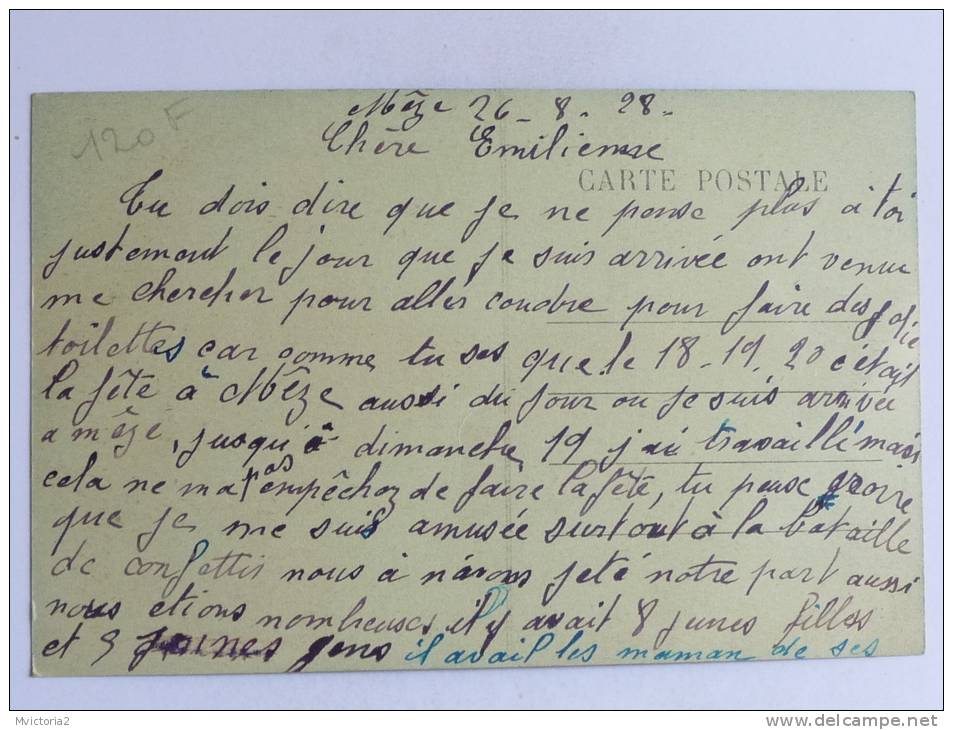 120 F
Mêze 26 - 8 - 28 -
Chère Emilienne
CARTE POSTALE
Tu dois dire que je ne pense plus à toi
justement le jour que je suis arrivée ont venue
me chercher pour aller coudre pour faire des jolie
toilettes car comme tu ses que le 18 - 19 . 20 c'était
la fête à Mêze aussi du jour ou je suis arrivée
a mêze, jusqu'à dimanche 19 j'ai travaillé mais
cela ne ma pas empêchez de faire la fête, tu peuse croire
que je me suis amusée surtout à la bataille
de confettis nous à navons jeté notre part aussi
nous etions nombreuses il y avait 8 junes filles
et 5 jeunes gens il avait les maman de ses
Mvictoria2
www.delcampe.net